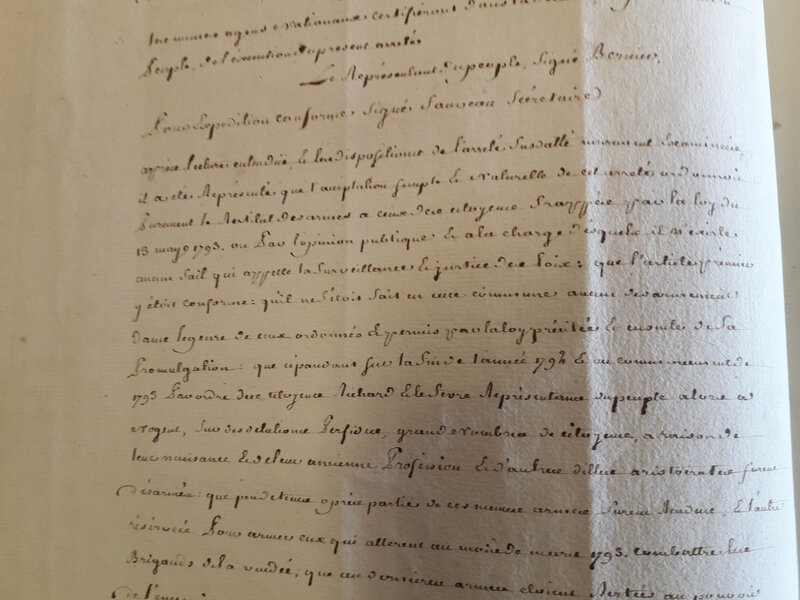 mêmes agens nationaux certifieront dans la
Peuple, de l'exécution du present arrêté
Le Représentant du peuple, signé Bernier.
Pour Expedition conforme signé Sauveau Sécrétaire
après lecture entendüe, & les dispositions de l'arrêté susdatté murement Examinées,
il a été Représenté que l'acceptation simple & naturelle de cet arrêté ordonnoit
Purement le Restitut des armes a ceux des citoyens frappés par la loy du
13 mars 1793. ou Par l'opinion publique & a la charge desquels il n'existe
aucun fait qui appelle la surveillance & justice des Loix: que l'article premier
y étoit conforme: qu'il ne s'étoit fait en cette commune aucun desarmement
dans le genre de ceux ordonnés & permis par la loy précitée & ensuite de sa
Promulgation: que cépandant sur la fin de l'année 1792 & au commencement de
1793 Par ordre des citoyens Richard & le fevre Représentans du peuple alors a
nogent, sur des rélations Perfides, grand nombres de citoyens, a raison de
leur naissance & de leur ancienne Profession & d'autres dittes aristocrates furent
désarmés: que peu de tems après parties de ces mêmes armes furent Rendues, & l'autre
réservée Pour armer ceux qui allerent au mois de mars 1793. combattre les
Brigands de la vendée; que ces dernieres armes étoient Restées au pouvoir
de l'ennemi